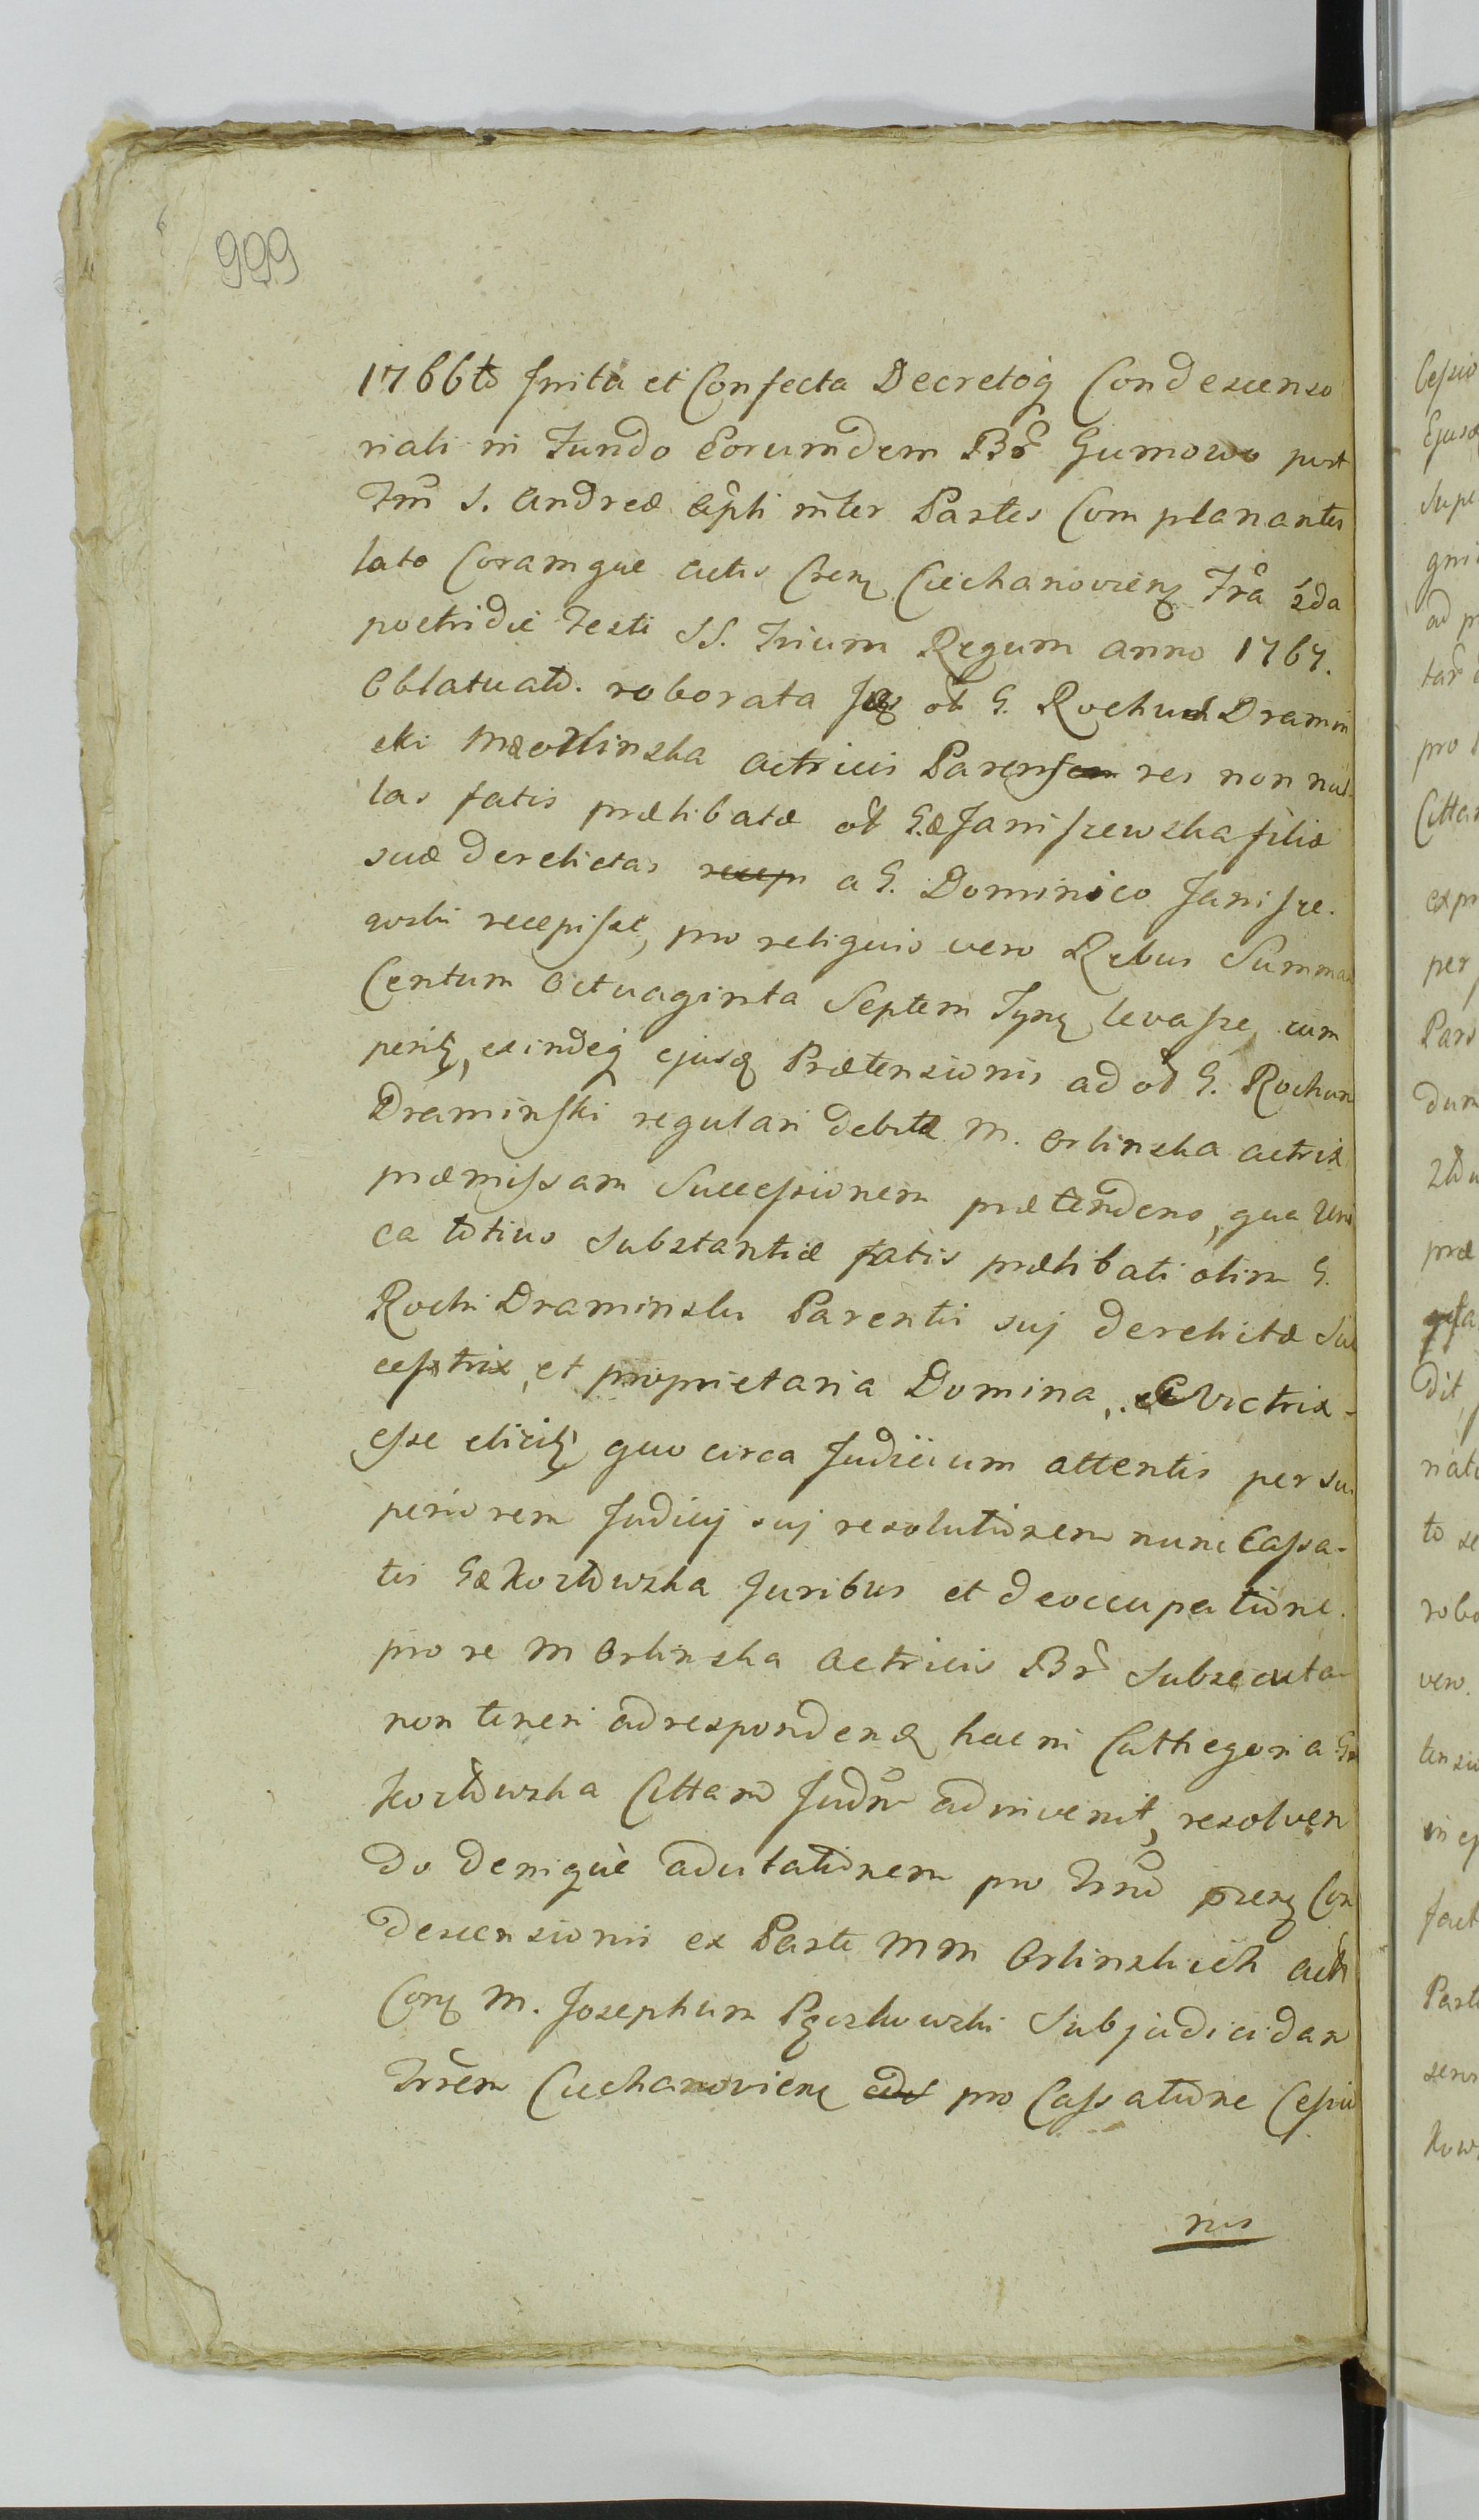 999
1766to Inita et Confecta Decretoq Condescenso
riali in Fundo Eorumdem Br Gumowo post
Fm S. Andreæ Apli inter Partes Complanantes
lato Coramque Actis Cren Ciechanovien Fra 2da
postridie Festi SS. Trium Regum Anno 1767.
Oblatuato. roborata ol G. Rochus Dramin
ski Mæ Orlinska Actricis Parens res non nul-
las fatis prælibatæ ol G.æ Janiszewska filiæ
suæ derelictas recep a G. Dominico Janisze.
wski recepisse, pro reliquis vero Rebus Summam
Centum Octuaginta Septem Tyn levasse, com
perit, exindeq ejusq Prætensionis ad ol G. Rochum
Draminski regulari debitæ M. Orlinska Actrix
præmissam Successionem prætendens, qua Uni
ca totius Substantiæ fatis prælibati olim G.
Rochi Draminski Parentis suj derelictæ Suc
cesstrix, et proprietaria Domina, Evictrix -
esse elicit, quo circa Judicium attentis per su
periorem Judicij suj resolutionem nunc Cassa-
tis Gæ Kozłowska Juribus et deoccupatione.
pro re M Orlinska Actricis Br Subsecuta
non teneri ad respondend hac in Cathegoria Gæ
Kozłowska Cittam Judm adinvenit, resolven
do denique adcitationem pro Trno præn Con
descensionis ex Parte MM Orlinskich Act
Con M. Josephum Pączkowski Subjudicidam
Trrem Ciechanovien pro Cassatione Cessio
nis